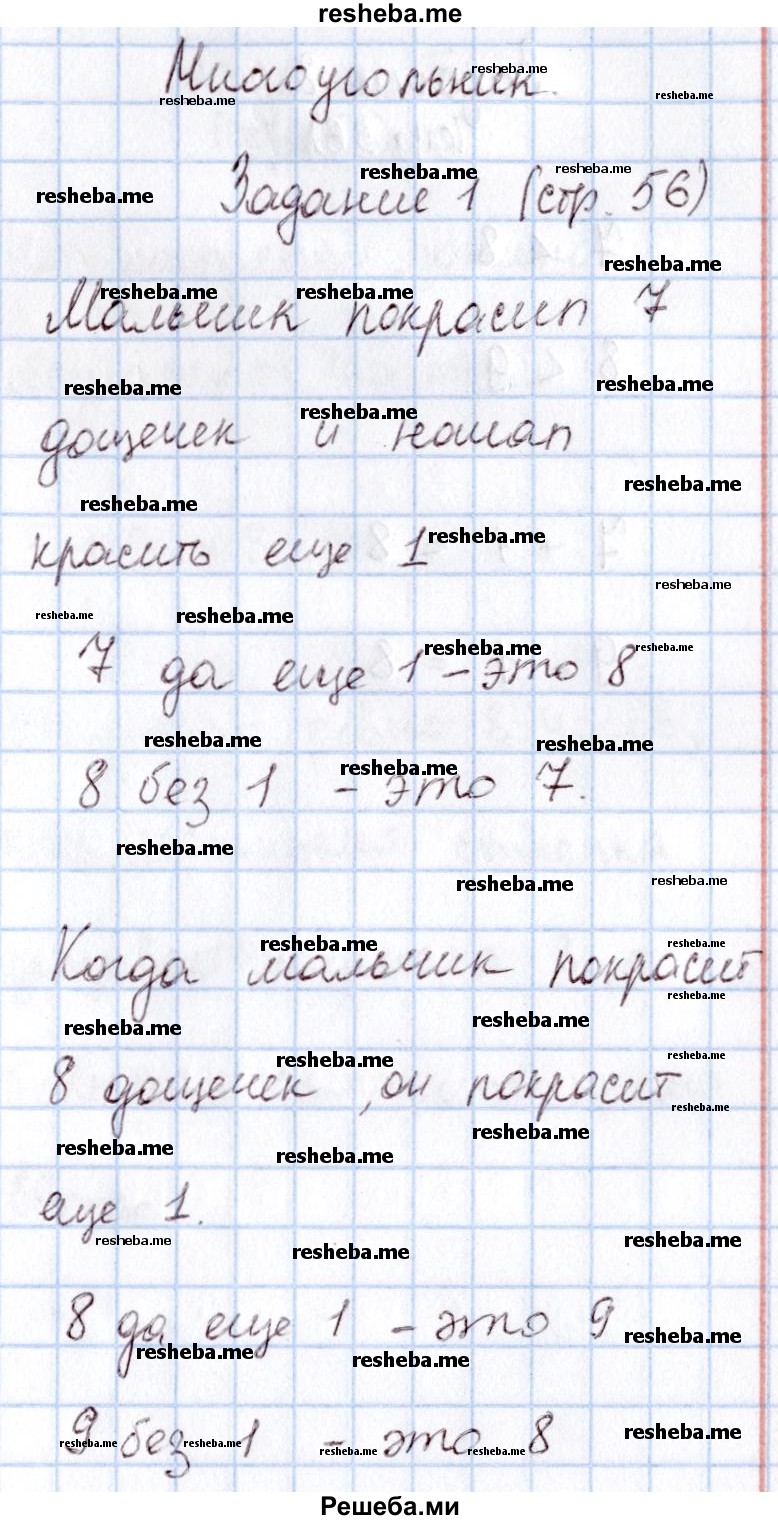 resheba.me
Многоугольник.
Задание 1 (стр. 56)
Мальчик покрасил 7
дощечек и начал
красить еще 1
7 да еще 1 - это 8
8 без 1 - это 7.
Когда мальчик покрасит
8 дощечек, он покрасит
еще 1.
8 да еще 1 - это 9
9 без 1 - это 8
Решеба.ми